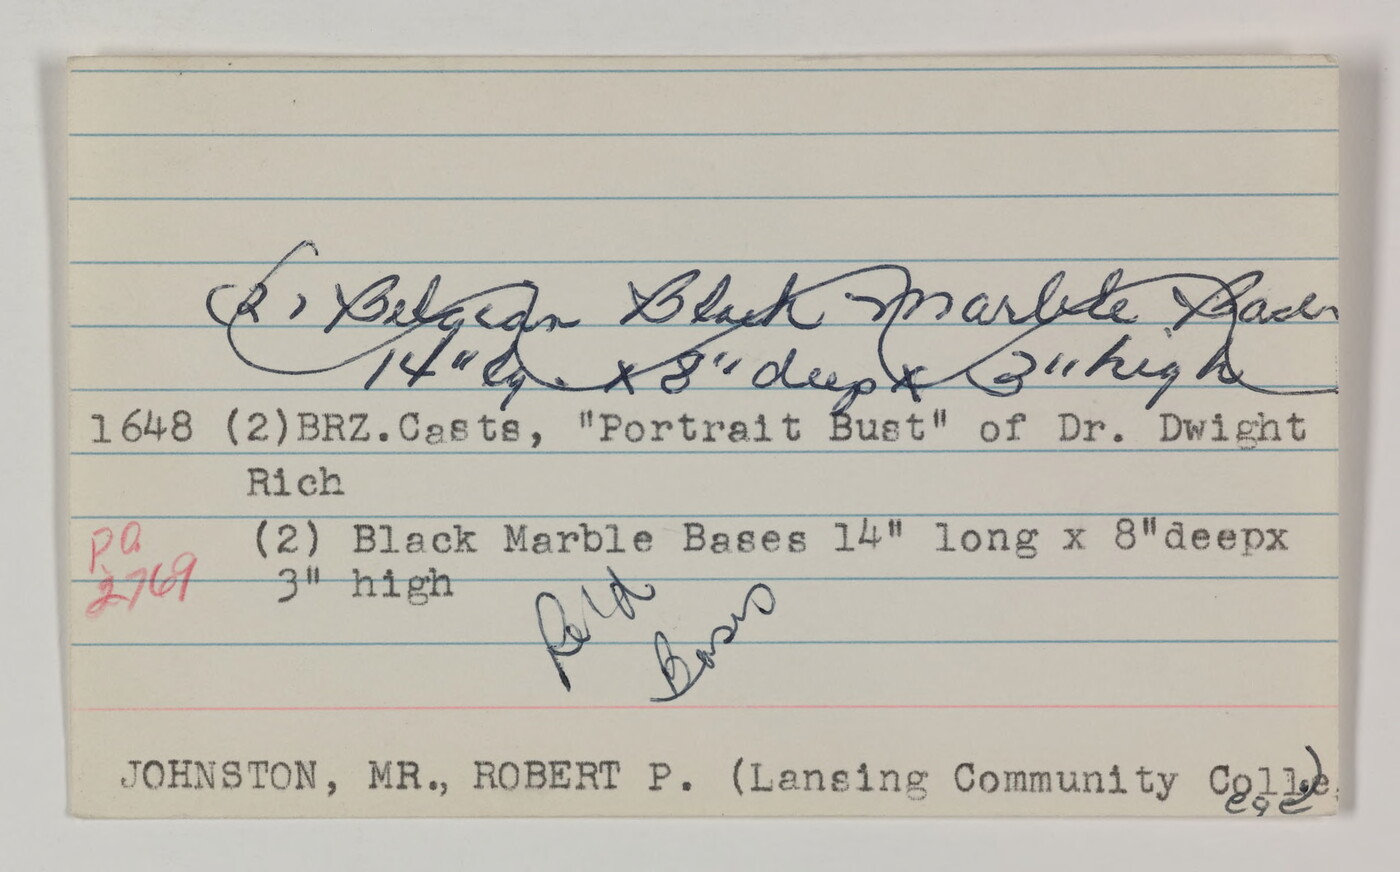 (2) Belgian Black Marble Bases
14" lg. x 8" deep x 3" high
1648 (2)BRZ.Casts, "Portrait Bust" of Dr. Dwight
Rich
(2) Black Marble Bases 14" long x 8"deepx
3" high
P.O
2769
Re'd
Bases
JOHNSTON, MR., ROBERT P. (Lansing Community Colle
ege)